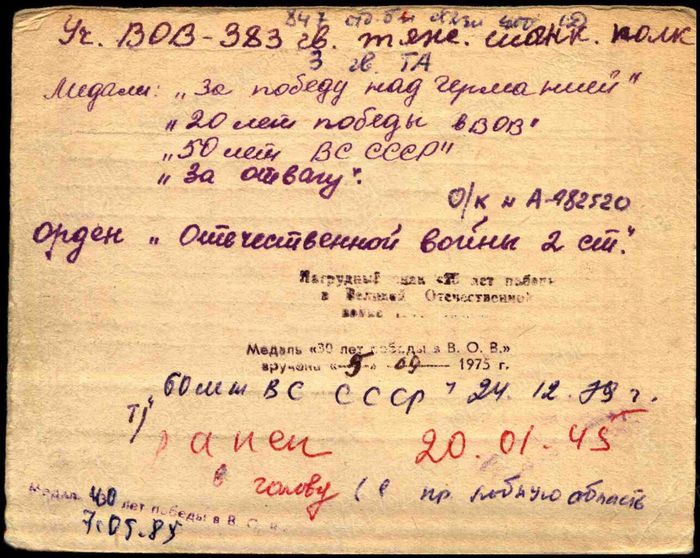 847
Уч. ВОВ - 383 гв. тяж. танк. полк
3 гв. ТА
Медали: „За победу над Германией"
„20 лет победы в ВОВ"
„50 лет ВС СССР"
„За отвагу".
О/к н А-982520
Орден „Отечественной войны 2 ст."
Нагрудный знак «25 лет победы
в Великой Отечественной
войне
Медаль «30 лет победы в В. О. В.»
вручена « » 09 1975 г.
„60 лет ВС СССР" 24. 12. 79 г.
ранен 20. 01. 45
в голову (в пр. лобную область
Медаль 40 лет победы в В. О. В.
7.05.85